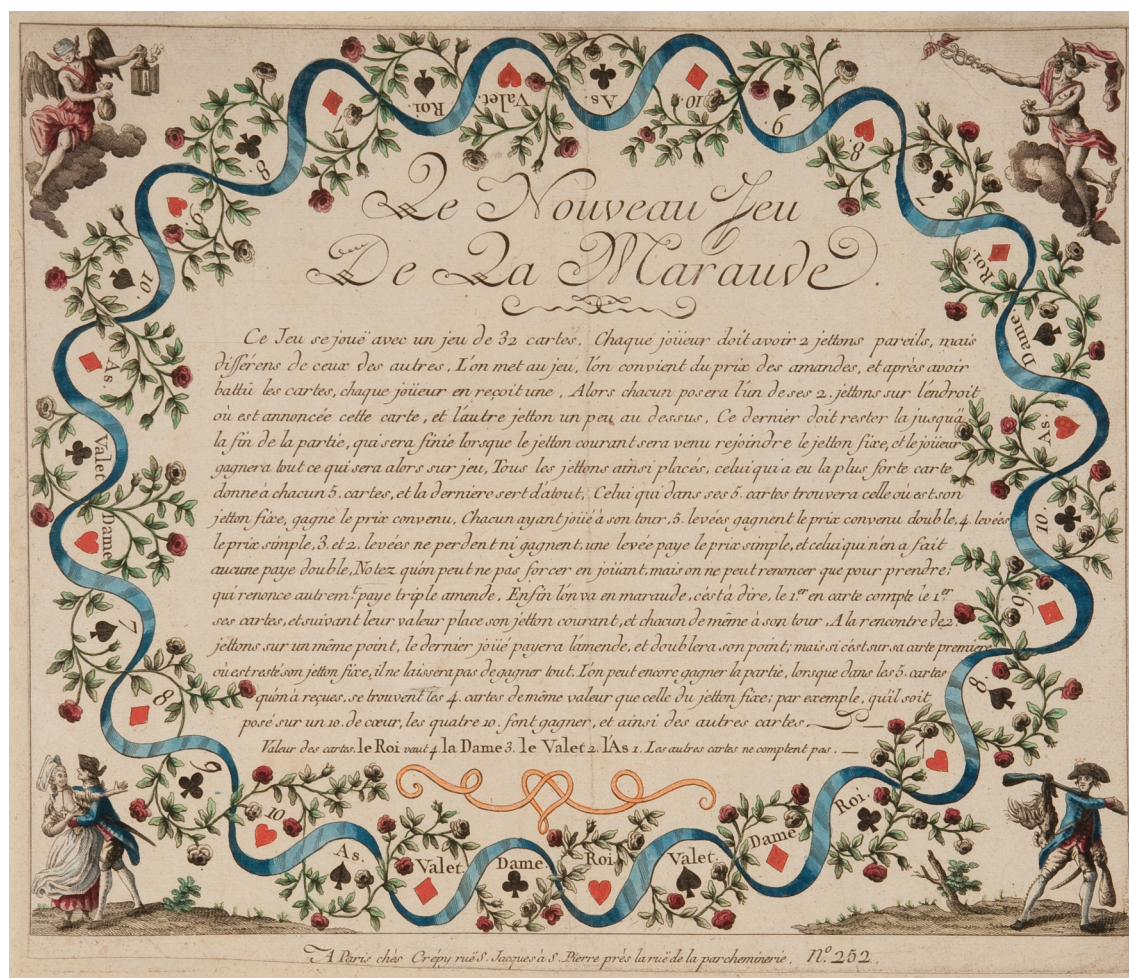 7.
Roi.
Valet.
As.
10.
9.
8.
7.
Roi.
Dame.
As.
10.
9.
8.
7.
Roi.
Dame
Valet.
Roi.
Dame
Valet.
As.
10
9
8
7
Dame
Valet
As.
10.
9.
8.
Le Nouveau Jeu
De La Maraude.
Ce Jeu se joüe avec un jeu de 32 cartes. Chaque joüeur doit avoir 2 jettons pareils, mais
différens de ceux des autres. L'on met au jeu, l'on convient du prix des amandes, et après avoir
battü les cartes, chaque joüeur en reçoit une. Alors chacun posera l'un de ses 2. jettons sur l'endroit
où est annoncée cette carte, et l'autre jetton un peu au dessus. Ce dernier doit rester la jusqu'a
la fin de la partie, qui sera finie lorsque le jetton courant sera venu rejoindre le jetton fixe, et le joüeur
gagnera tout ce qui sera alors sur jeu, Tous les jettons ainsi placés, celui qui a eu la plus forte carte
donne à chacun 5. cartes, et la derniere sert d'atout, Celui qui dans ses 5. cartes trouvera celle où est son
jetton fixe, gagne le prix convenu. Chacun ayant joüé à son tour, 5. levées gagnent le prix convenu double, 4. levées
le prix simple, 3. et 2. levées ne perdent ni gagnent, une levée paye le prix simple, et celui qui n'en a fait
aucune paye double, Notez qu'on peut ne pas forcer en joüant, mais on ne peut renoncer que pour prendre;
qui renonce autrem.t paye triple amende. Enfin l'on va en maraude, c'est à dire, le 1.er en carte compte le 1.er
ses cartes, et suivant leur valeur place son jetton courant, et chacun de même à son tour. A la rencontre de 2
jettons sur un même point, le dernier joüé payera l'amende, et doublera son point; mais si c'est sur sa carte premiere
où est resté son jetton fixe, il ne laissera pas de gagner tout. L'on peut encore gagner la partie, lorsque dans les 5. cartes
qu'on à reçues, se trouvent les 4. cartes de même valeur que celle du jetton fixe; par exemple, qu'il soit
posé sur un 10. de cœur, les quatre 10. font gagner, et ainsi des autres cartes.
Valeur des cartes. le Roi vaut 4 la Dame 3. le Valet 2. l'As 1. Les autres cartes ne comptent pas.
A Paris chés Crépy ruë S. Jacques à S. Pierre près la ruë de la parcheminerie. N.o 252.